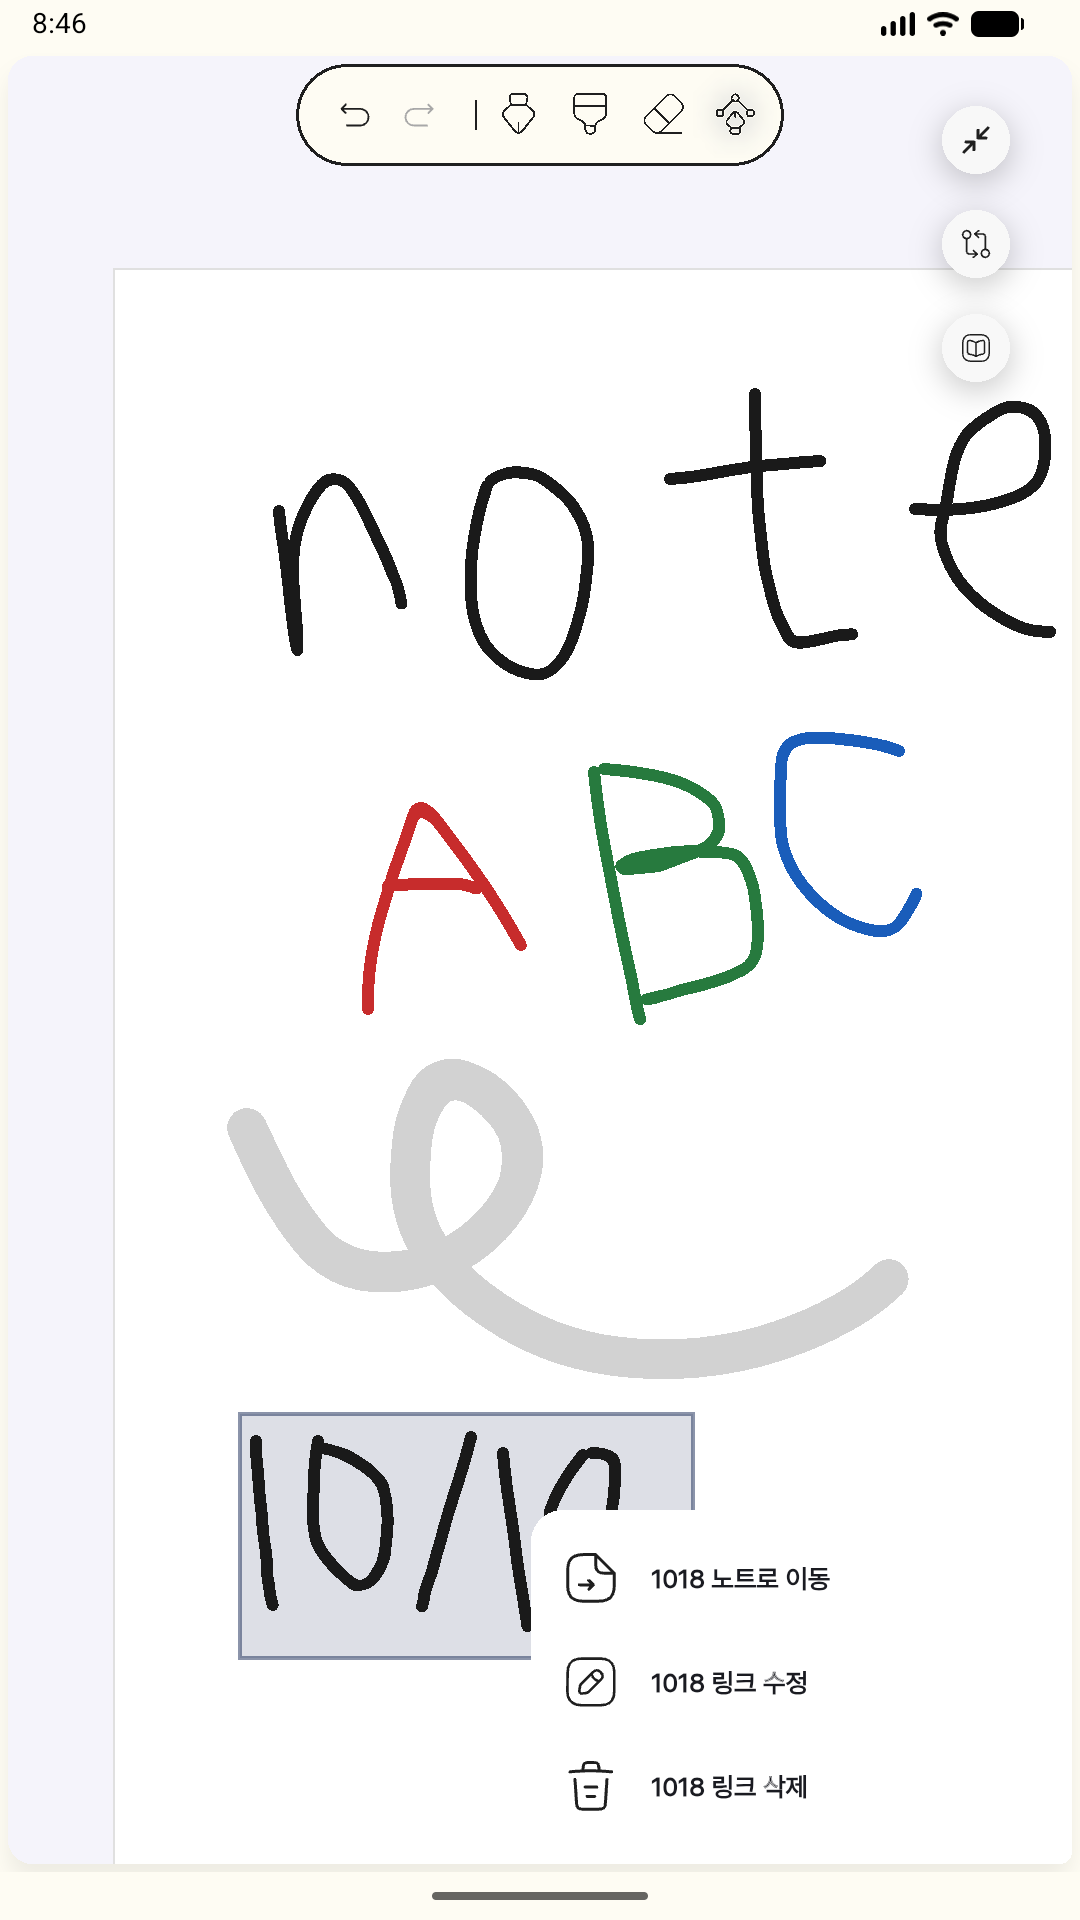 8:46
note
ABC
10/1
1018 노트로 이동
1018 링크 수정
1018 링크 삭제